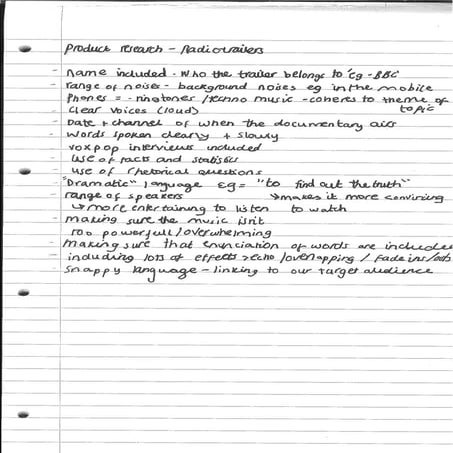 Product research - Radio trailers
- name included - who the trailer belongs to eg - BBC
- range of noises - background noises eg in the mobile
phones = - ringtones / techno music - coheres to theme of topic
- clear voices (loud)
- Date + channel of when the documentary airs
- words spoken clearly + slowly
- vox pop interviews included
- use of facts and statistics
- use of rhetorical questions
- "Dramatic" language eg = "to find out the truth"
- range of speakers → makes it more convincing
↳ more entertaining to listen to watch
- making sure the music isnt
too powerfull / overwhelming
- making sure that enunciation of words are included
- including lots of effects > echo / overlapping / fade ins / outs
- snappy language - linking to our target audience